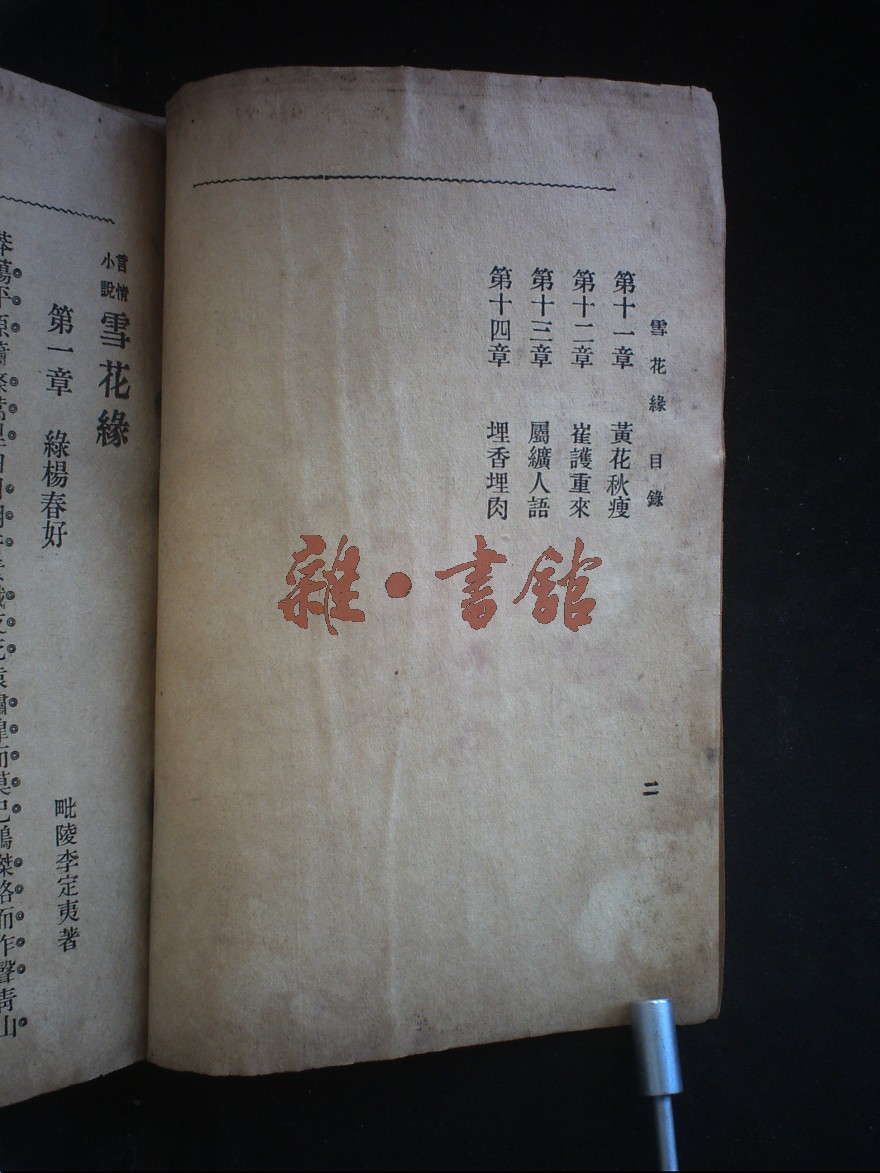 雪花緣 目錄
二
第十一章 黃花秋瘦
第十二章 崔護重來
第十三章 屬纊人語
第十四章 埋香埋肉
雜·書館
言情小說 雪花緣
第一章 綠楊春好
毗陵李定夷著